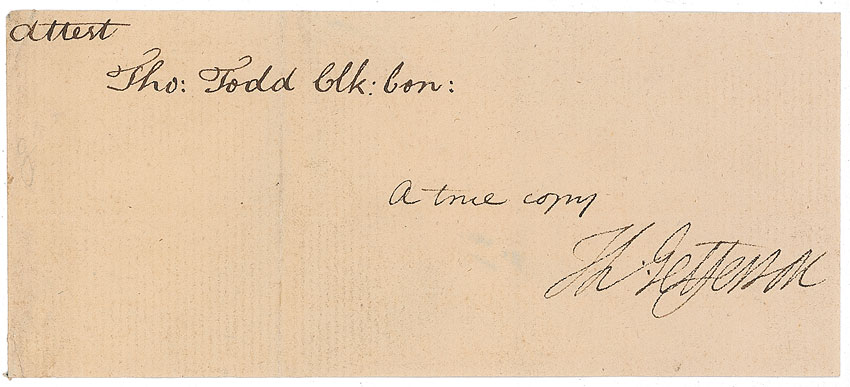 Attest
Tho: Todd Clk: Con:
A true copy
Th: Jefferson